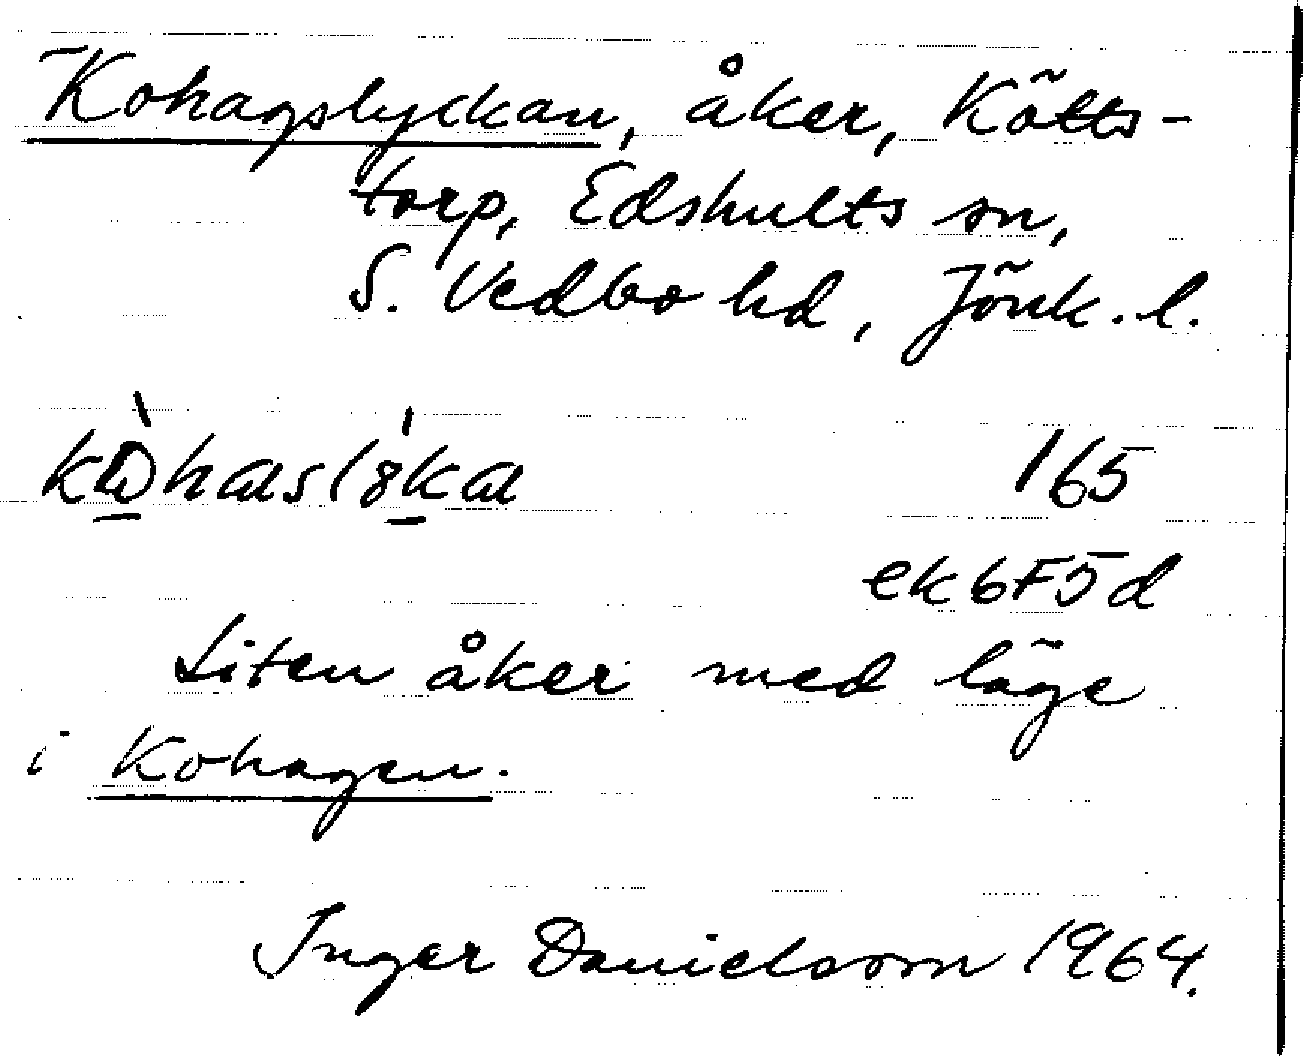 Kohagslyckan, åker, Kötts-
torp, Edshults sn,
S. Vedbo hd, Jönk. l.
165
ek 6F5d
Liten åker med läge
i Kohagen.
Inger Danielsson 1964.